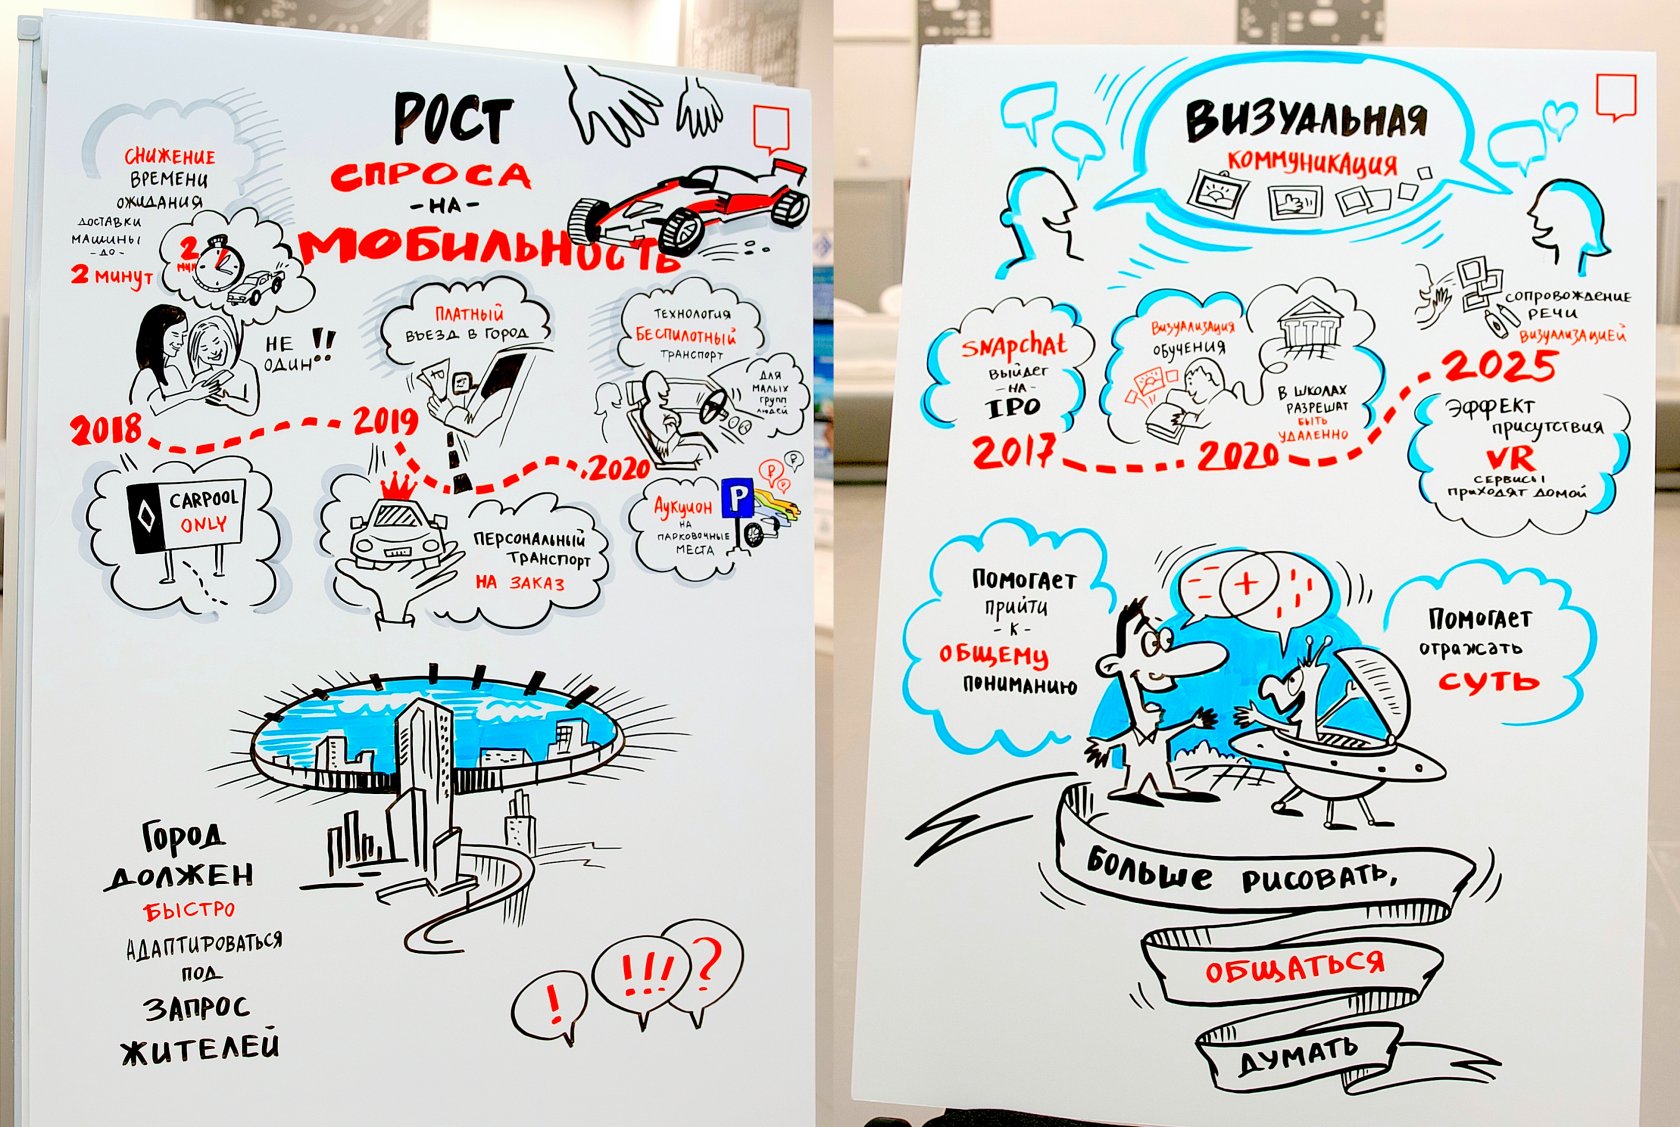 РОСТ
СПРОСА
-НА-
МОБИЛЬНОСТЬ
СНИЖЕНИЕ
ВРЕМЕНИ
ОЖИДАНИЯ
ДОСТАВКИ
МАШИНЫ
-ДО-
2 минут
2
НЕ
ОДИН!!
2018
CARPOOL
ONLY
ПЛАТНЫЙ
ВЪЕЗД В ГОРОД
2019
ПЕРСОНАЛЬНЫЙ
ТРАНСПОРТ
НА ЗАКАЗ
ТЕХНОЛОГИЯ
БЕСПИЛОТНЫЙ
ТРАНСПОРТ
ДЛЯ
МАЛЫХ
ГРУПП
ЛЮДЕЙ
2020
АУКЦИОН
НА
ПАРКОВОЧНЫЕ
МЕСТА
P
₽
₽
₽
ГОРОД
ДОЛЖЕН
БЫСТРО
АДАПТИРОВАТЬСЯ
ПОД
ЗАПРОС
ЖИТЕЛЕЙ
!
!!!
?
ВИЗУАЛЬНАЯ
КОММУНИКАЦИЯ
SNAPCHAT
ВЫЙДЕТ
-НА-
IPO
2017
ВИЗУАЛИЗАЦИЯ
ОБУЧЕНИЯ
В ШКОЛАХ
РАЗРЕШАТ
БЫТЬ
УДАЛЕННО
2020
СОПРОВОЖДЕНИЕ
РЕЧИ
ВИЗУАЛИЗАЦИЕЙ
2025
ЭФФЕКТ
ПРИСУТСТВИЯ
VR
СЕРВИСЫ
ПРИХОДЯТ ДОМОЙ
ПОМОГАЕТ
ПРИЙТИ
-К-
ОБЩЕМУ
ПОНИМАНИЮ
+
ПОМОГАЕТ
ОТРАЖАТЬ
СУТЬ
БОЛЬШЕ РИСОВАТЬ,
ОБЩАТЬСЯ
ДУМАТЬ